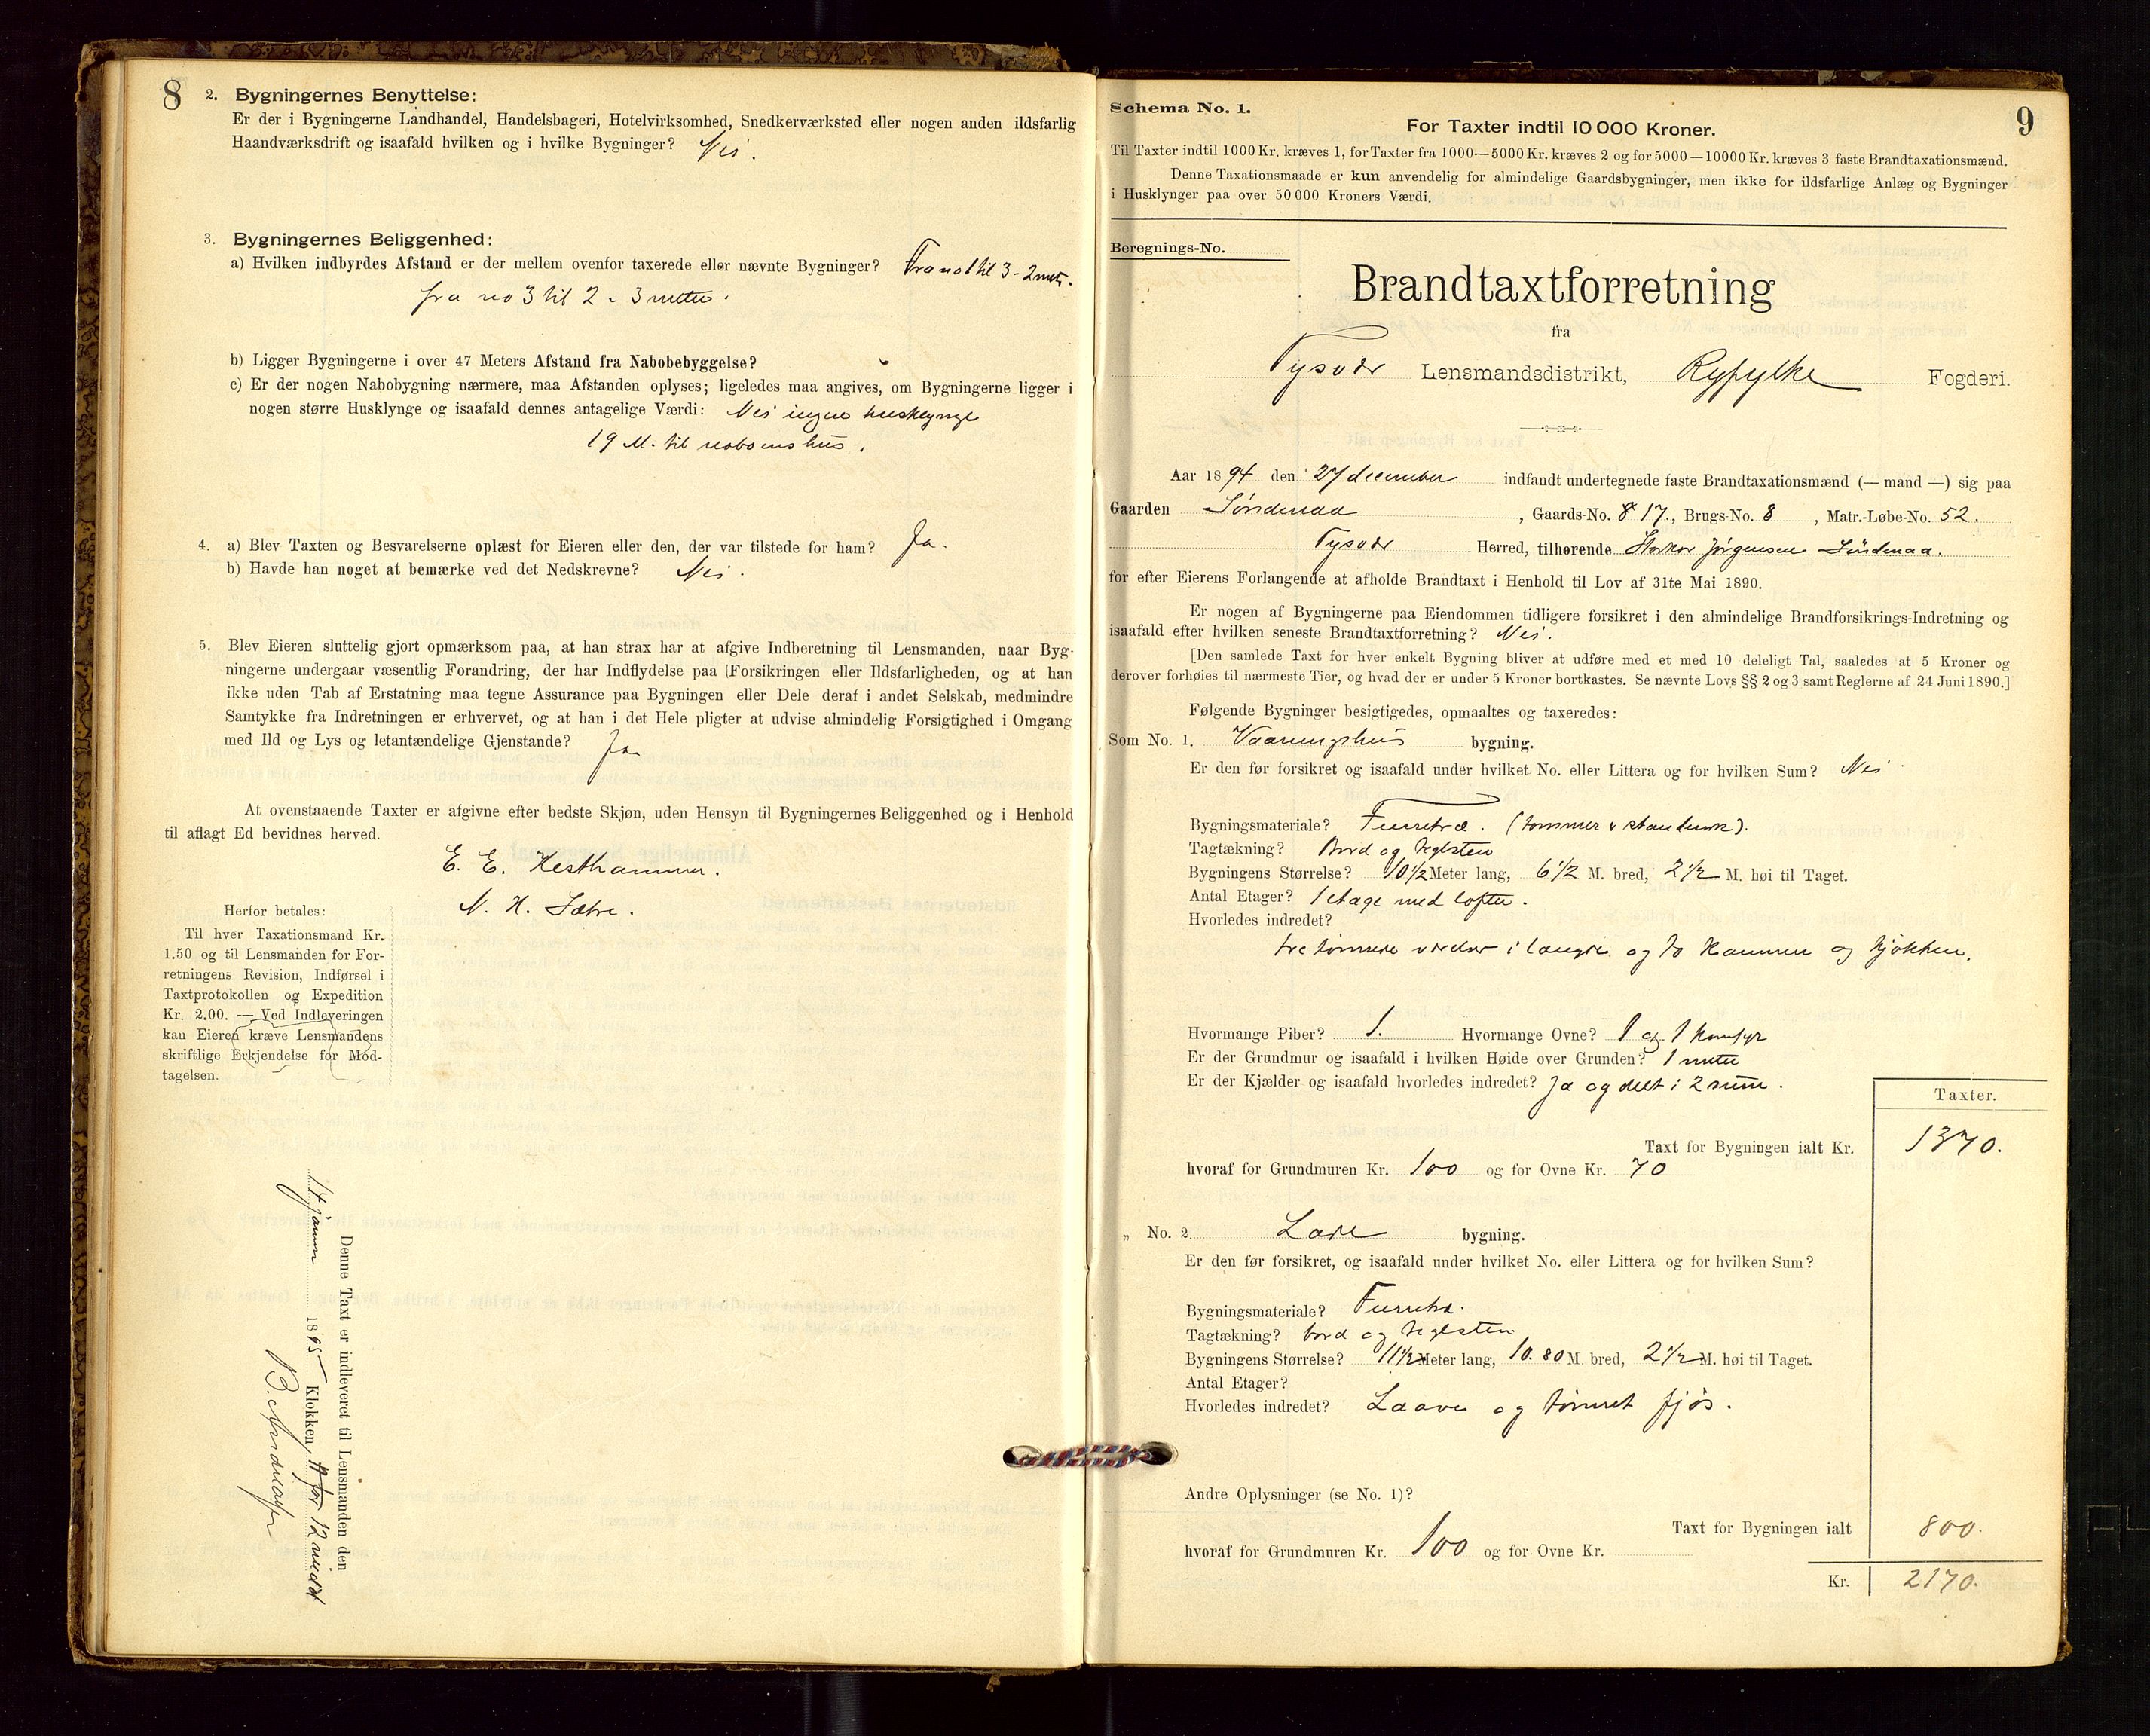 8
2. Bygningernes Benyttelse:
Er der i Bygningerne Landhandel, Handelsbageri, Hotelvirksomhed, Snedkerværksted eller nogen anden ildsfarlig
Haandværksdrift og isaafald hvilken og i hvilke Bygninger? Nei.
3. Bygningernes Beliggenhed:
a) Hvilken indbyrdes Afstand er der mellem ovenfor taxerede eller nævnte Bygninger? Fra no 1 til 3 - 2 metr.
fra no 3 til 2 - 3 meter.
b) Ligger Bygningerne i over 47 Meters Afstand fra Nabobebyggelse?
c) Er der nogen Nabobygning nærmere, maa Afstanden oplyses; ligeledes maa angives, om Bygningerne ligger i
nogen større Husklynge og isaafald dennes antagelige Værdi: Nei ingen husklynge
19 M. til naboens hus.
4. a) Blev Taxten og Besvarelserne oplæst for Eieren eller den, der var tilstede for ham? Ja.
b) Havde han noget at bemærke ved det Nedskrevne? Nei.
5. Blev Eieren sluttelig gjort opmærksom paa, at han strax har at afgive Indberetning til Lensmanden, naar Byg-
ningerne undergaar væsentlig Forandring, der har Indflydelse paa Forsikringen eller Ildsfarligheden, og at han
ikke uden Tab af Erstatning maa tegne Assurance paa Bygningen eller Dele deraf i andet Selskab, medmindre
Samtykke fra Indretningen er erhvervet, og at han i det Hele pligter at udvise almindelig Forsigtighed i Omgang
med Ild og Lys og letantændelige Gjenstande? Ja
At ovenstaaende Taxter er afgivne efter bedste Skjøn, uden Hensyn til Bygningernes Beliggenhed og i Henhold
til aflagt Ed bevidnes herved.
E. E. Hesthammer.
N. H. Sætre.
Herfor betales:
Til hver Taxationsmand Kr.
1.50 og til Lensmanden for For-
retningens Revision, Indførsel i
Taxtprotokollen og Expedition
Kr. 2.00. — Ved Indleveringen
kan Eieren kræve Lensmandens
skriftlige Erkjendelse for Mod-
tagelsen.
Denne Taxt er indleveret til Lensmanden den
14 januar 1895 Klokken 12 middt
B.
9
Schema No. 1.
For Taxter indtil 10 000 Kroner.
Til Taxter indtil 1000 Kr. kræves 1, for Taxter fra 1000—5000 Kr. kræves 2 og for 5000—10000 Kr. kræves 3 faste Brandtaxationsmænd.
Denne Taxationsmaade er kun anvendelig for almindelige Gaardsbygninger, men ikke for ildsfarlige Anlæg og Bygninger
i Husklynger paa over 50 000 Kroners Værdi.
Beregnings-No.
Brandtaxtforretning
fra
Tysvær Lensmandsdistrikt, Ryfylke Fogderi.
Aar 1894 den 27 december indfandt undertegnede faste Brandtaxationsmænd (— mand —) sig paa
Gaarden Søndenaa, Gaards-No. 8 17., Brugs-No. 8, Matr.-Løbe-No. 52.
Tysvær Herred, tilhørende Jørgensen Søndenaa.
for efter Eierens Forlangende at afholde Brandtaxt i Henhold til Lov af 31te Mai 1890.
Er nogen af Bygningerne paa Eiendommen tidligere forsikret i den almindelige Brandforsikrings-Indretning og
isaafald efter hvilken seneste Brandtaxtforretning? Nei.
[Den samlede Taxt for hver enkelt Bygning bliver at udføre med et med 10 deleligt Tal, saaledes at 5 Kroner og
derover forhøies til nærmeste Tier, og hvad der er under 5 Kroner bortkastes. Se nævnte Lovs §§ 2 og 3 samt Reglerne af 24 Juni 1890.]
Følgende Bygninger besigtigedes, opmaaltes og taxeredes:
Som No. 1. Vaaningshus bygning.
Er den før forsikret og isaafald under hvilket No. eller Littera og for hvilken Sum? Nei
Bygningsmateriale? Furretræ. (tømmer & standverk).
Tagtækning? Bord og teglsten
Bygningens Størrelse? 10 1/2 Meter lang, 6 1/2 M. bred, 2 1/2 M. høi til Taget.
Antal Etager? 1 etage med lofter.
Hvorledes indredet?
tre tømrede i længde og to kammer og kjøkken.
Hvormange Piber? 1. Hvormange Ovne? 1 og 1 komfyr
Er der Grundmur og isaafald i hvilken Høide over Grunden? 1 meter
Er der Kjælder og isaafald hvorledes indredet? Ja og delt i 2 rum.
Taxter.
Taxt for Bygningen ialt Kr. 1370.
hvoraf for Grundmuren Kr. 100 og for Ovne Kr. 70
„ No. 2. Lade bygning.
Er den før forsikret, og isaafald under hvilket No. eller Littera og for hvilken Sum?
Bygningsmateriale? Furretræ.
Tagtækning? bord og teglsten
Bygningens Størrelse? 11 1/2 Meter lang, 10.80 M. bred, 2 1/2 M. høi til Taget.
Antal Etager?
Hvorledes indredet? Laave og tømret fjøs.
Andre Oplysninger (se No. 1)?
Taxt for Bygningen ialt 800.
hvoraf for Grundmuren Kr. 100 og for Ovne Kr.
Kr. 2170.